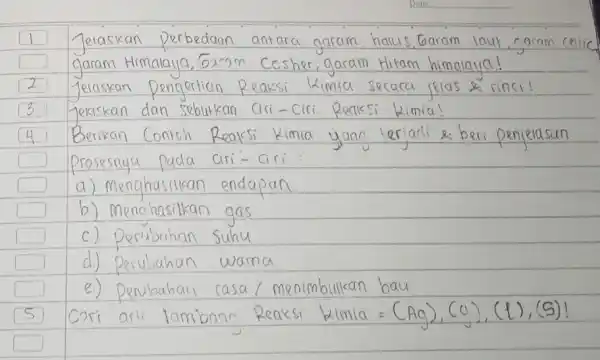 1 Jelaskan Perbedaan antara garam halus, Garam laut, garam celtic
garam Himalaya, Garam Cosher, garam Hitam himalaya!
2 Jelaskan Pengertian Reaksi Kimia secara jelas & rinci!
3 Jelaskan dan sebutkan Ciri - Ciri Reaksi Kimia!
4 Berikan Contoh Reaksi Kimia yang terjadi & beri penjelasan
Prosesnya pada ciri - ciri :
a) menghasilkan endapan
b) menghasilkan gas
c) Perubahan Suhu
d) Perubahan warna
e) Perubahan rasa / menimbulkan bau
5 Cari arti lambang Reaksi kimia = (Ag), (g), (l), (S)!